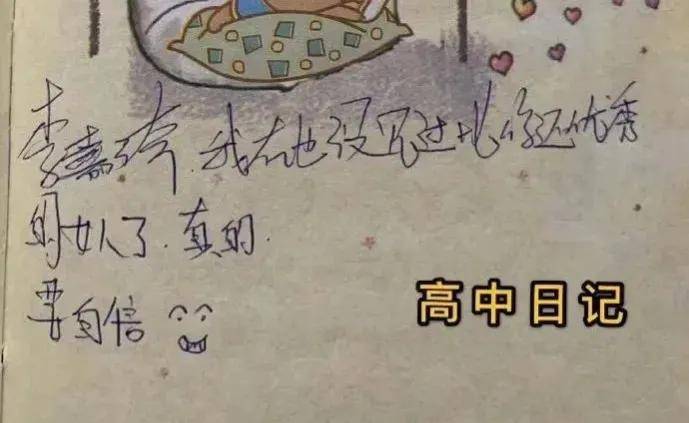 李嘉玲.我在也没见过比你还优秀
的女人了.真的.
要自信
高中日记